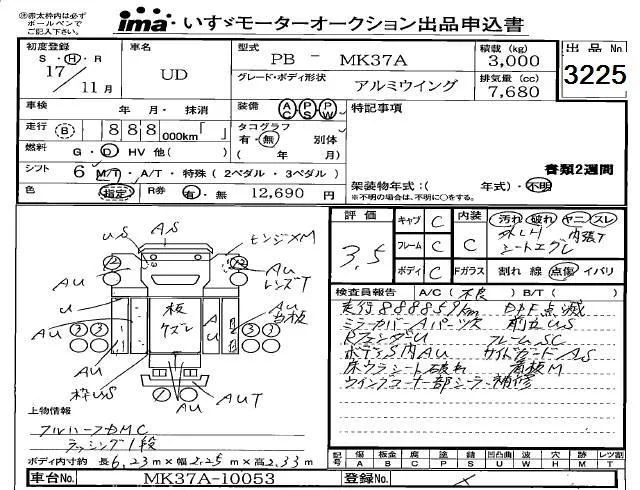 (注)赤太枠内は必ず
ボールペンで
ご記入下さい。
ima いすゞモーターオークション出品申込書
初度登録 車名 型式 積載(kg) 出品No.
S・H・R
17/11月 UD PB - MK37A 3,000 3225
グレード・ボディ形状 アルミウイング 排気量(cc) 7,680
車検 年 月・ 抹消 装備 AC PS PW 特記事項
走行 B 888 000km「 」 タコグラフ 有・無 別体
( 年 月)
燃料 G・D HV 他( )
シフト 6 M/T・A/T・特殊(2ペダル・3ペダル) 書類2週間
色 指定 R券 有・無 12,690円
架装物年式:( 年式)・不明
※不明の場合は、不明に○をする。
評価 3.5
キャブ C 内装 C 汚れ 破れ ヤニ スレ
フレーム C
ボディ C Fガラス 割れ 線 点傷 イバリ
シートエグレ
US AS
AU
レンズT
AU U AU
板
ケズレ
AU
AU
AU
AUT
検査員報告 A/C(不良) B/T( )
走行888859Km DPF点滅
ミラーカバーAパーツ欠 前立US
RフェンダーU フレームSC
ボディS内AU サイドガードAS
床ウラシート破れ 看板M
ウイングコーナー部シーラー補修
上物情報
フルハーフDMC
ラッシング1段
ボディ内寸約 長6.23m×幅2.25m×高2.33m
記号 傷A 板金B 腐C 塗P 錆S 凹凸曲U 波W 穴H 跡M レツ割T
車台No. MK37A-10053 登録No.